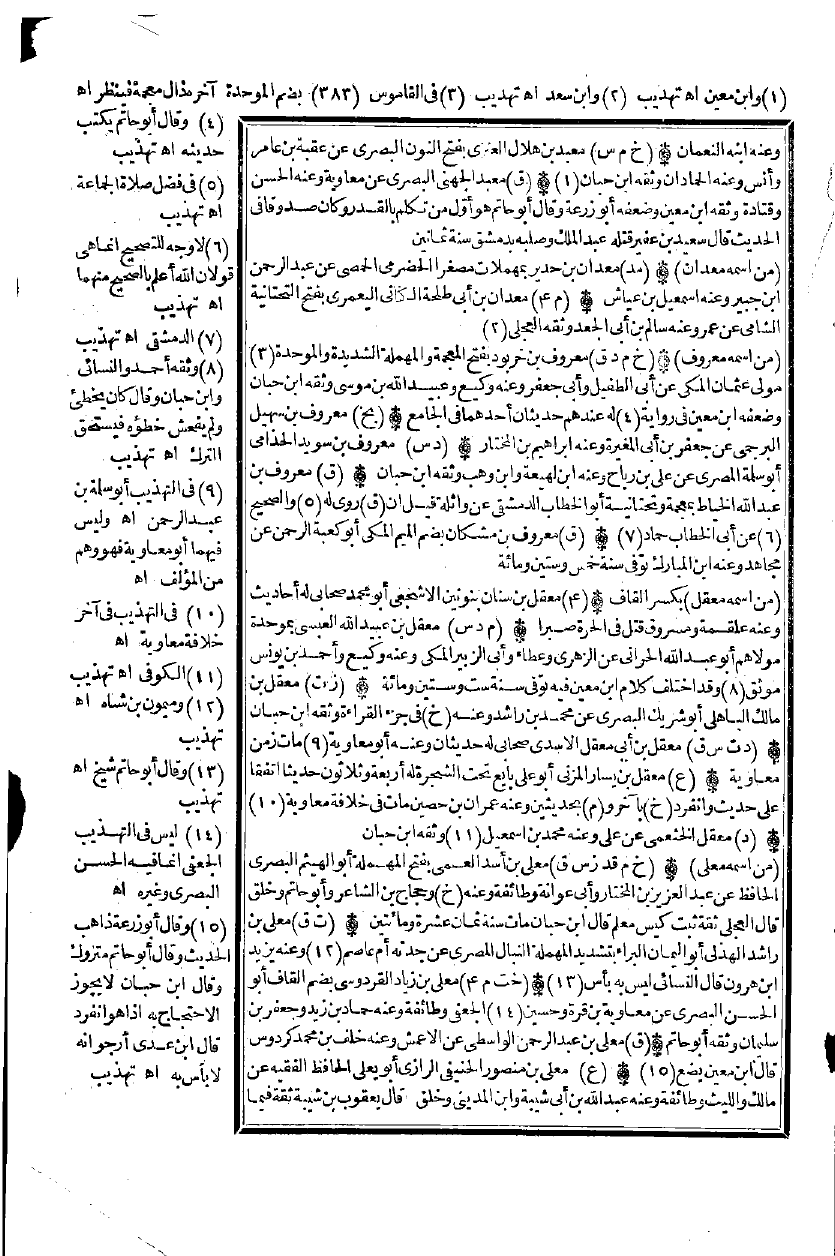 (١) وابن معين اه تهذيب (٢) وابن سعد اه تهذيب (٣) فى القاموس (٣٨٣) بضم الموحدة آخره ذال معجمة فينظر اه
وعنه ابنه النعمان ۞ (خ م س) معبد بن هلال العنزى بفتح النون البصرى عن عقبة بن عامر
وأنس وعنه الحمادان وثقه ابن حبان (١) ۞ (ق) معبد الجهنى البصرى عن معاوية وعنه الحسن
وقتادة وثقه ابن معين وضعفه أبو زرعة وقال أبو حاتم هو أول من تكلم بالقدر وكان صدوقا فى
الحديث قال سعيد بن عفير قتله عبد الملك وصلبه بدمشق سنة ثمانين
(من اسمه معدان) ۞ (مد) معدان بن حدير بمهملات مصغرا الحضرمى الحمصى عن عبد الرحمن
ابن جبير وعنه اسمعيل بن عياش ۞ (م ٤) معدان بن أبى طلحة الكنانى اليعمرى بفتح التحتانية
الشامى عن عمر وعنه سالم بن أبى الجعد وثقه العجلى (٢)
(من اسمه معروف) ۞ (خ م د ق) معروف بن خربوذ بفتح المعجمة والمهملة الشديدة والموحدة (٣)
مولى عثمان المكى عن أبى الطفيل وأبى جعفر وعنه وكيع وعبيد الله بن موسى وثقه ابن حبان
وضعفه ابن معين فى رواية (٤) له عندهم حديثان أحدهما فى الجامع ۞ (بخ) معروف بن سهيل
البرجمى عن جعفر بن أبى المغيرة وعنه ابراهيم بن المختار ۞ (د س) معروف بن سويد الجذامى
أبو سلمة المصرى عن على بن رباح وعنه ابن لهيعة وابن وهب وثقه ابن حبان ۞ (ق) معروف بن
عبد الله الخياط بمعجمة وتحتانية أبو الخطاب الدمشقى عن واثلة قيل ان (ق) روى له (٥) والصحيح
(٦) عن أبى الخطاب حماد (٧) ۞ (ق) معروف بن مشكان بضم الميم المكى أبو كعبة الرحمن عن
مجاهد وعنه ابن المبارك توفى سنة خمس وستين ومائة
(من اسمه معقل) بكسر القاف ۞ (٤) معقل بن سنان بنونين الاشجعى أبو محمد صحابى له أحاديث
وعنه علقمة ومسروق قتل فى الحرة صبرا ۞ (م د س) معقل بن عبيد الله العبسى بموحدة
مولاهم أبو عبد الله الحرانى عن الزهرى وعطاء وأبى الزبير المكى وعنه وكيع وأحمد بن يونس
موثق (٨) وقد اختلف كلام ابن معين فيه توفى سنة ست وستين ومائة ۞ (ز ت) معقل بن
مالك الباهلى أبو شريك البصرى عن محمد بن راشد وعنه (خ) فى جزء القراءة وثقه ابن حبان
۞ (د ت س ق) معقل بن أبى معقل الاسدى صحابى له حديثان وعنه أبو معاوية (٩) مات زمن
معاوية ۞ (ع) معقل بن يسار المزنى أبو على بايع تحت الشجرة له أربعة وثلاثون حديثا اتفقا
على حديث وانفرد (خ) بآخر و (م) بحديثين وعنه عمران بن حصين مات فى خلافة معاوية (١٠)
۞ (د) معقل الخثعمى عن على وعنه محمد بن اسمعيل (١١) وثقه ابن حبان
(من اسمه معلى) ۞ (خ م قد ز س ق) معلى بن أسد العمى بفتح المهملة أبو الهيثم البصرى
الحافظ عن عبد العزيز بن المختار وأبى عوانة وطائفة وعنه (خ) وحجاج بن الشاعر وأبو حاتم وخلق
قال العجلى ثقة ثبت كيس معلم قال ابن حبان مات سنة ثمان عشرة ومائتين ۞ (ت ق) معلى بن
راشد الهذلى أبو اليمان البراء بتشديد المهملة النبال المصرى عن جدته أم عاصم (١٢) وعنه يزيد
ابن هرون قال النسائى ليس به بأس (١٣) ۞ (خت م ٤) معلى بن زياد القردوسى بضم القاف أبو
الحسن البصرى عن معاوية بن قرة وحسين (١٤) الجعفى وطائفة وعنه حماد بن زيد وجعفر بن
سليمان وثقه أبو حاتم ۞ (ق) معلى بن عبد الرحمن الواسطى عن الاعمش وعنه خلف بن محمد كردوس
قال ابن معين يضع (١٥) ۞ (ع) معلى بن منصور الحنيفى الرازى أبو يعلى الحافظ الفقيه عن
مالك والليث وطائفة وعنه عبد الله بن أبى شيبة وابن المدينى وخلق قال يعقوب بن شيبة ثقة فيما
(٤) وقال أبو حاتم يكتب
حديثه اه تهذيب
(٥) فى فضل صلاة الجماعة
اه تهذيب
(٦) لا وجه للتصحيح انما هى
قولان الله أعلم بالصحيح منهما
اه تهذيب
(٧) الدمشقى اه تهذيب
(٨) وثقه أحمد والنسائى
وابن حبان وقال كان يخطئ
ولم يفحش خطؤه فيستحق
الترك اه تهذيب
(٩) فى التهذيب أبو سلمة بن
عبد الرحمن اه وليس
فيهما أبو معاوية فهو وهم
من المؤلف اه
(١٠) فى التهذيب فى آخر
خلافة معاوية اه
(١١) الكوفى اه تهذيب
(١٢) وميمون بن شباه اه
تهذيب
(١٣) وقال أبو حاتم شيخ اه
تهذيب
(١٤) ليس فى التهذيب
الجعفى انما فيه الحسن
البصرى وغيره اه
(١٥) وقال أبو زرعة ذاهب
الحديث وقال أبو حاتم متروك
وقال ابن حبان لا يجوز
الاحتجاج به اذا هو انفرد
قال ابن عدى أرجو انه
لا بأس به اه تهذيب